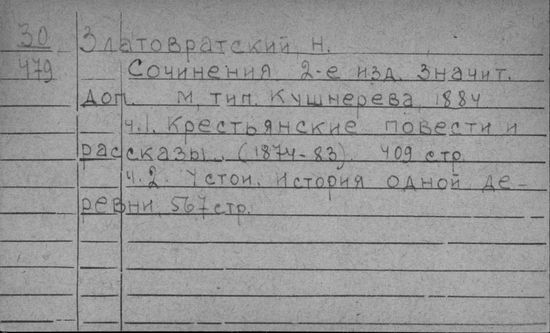 30 Златовратский, Н.
479 Сочинения. 2-е изд. значит.
доп. М, тип. Кушнерева, 1884
ч.1. Крестьянские повести и
рассказы. (1874-83) 409 стр.
ч.2. Устои. История одной де-
ревни. 567 стр.